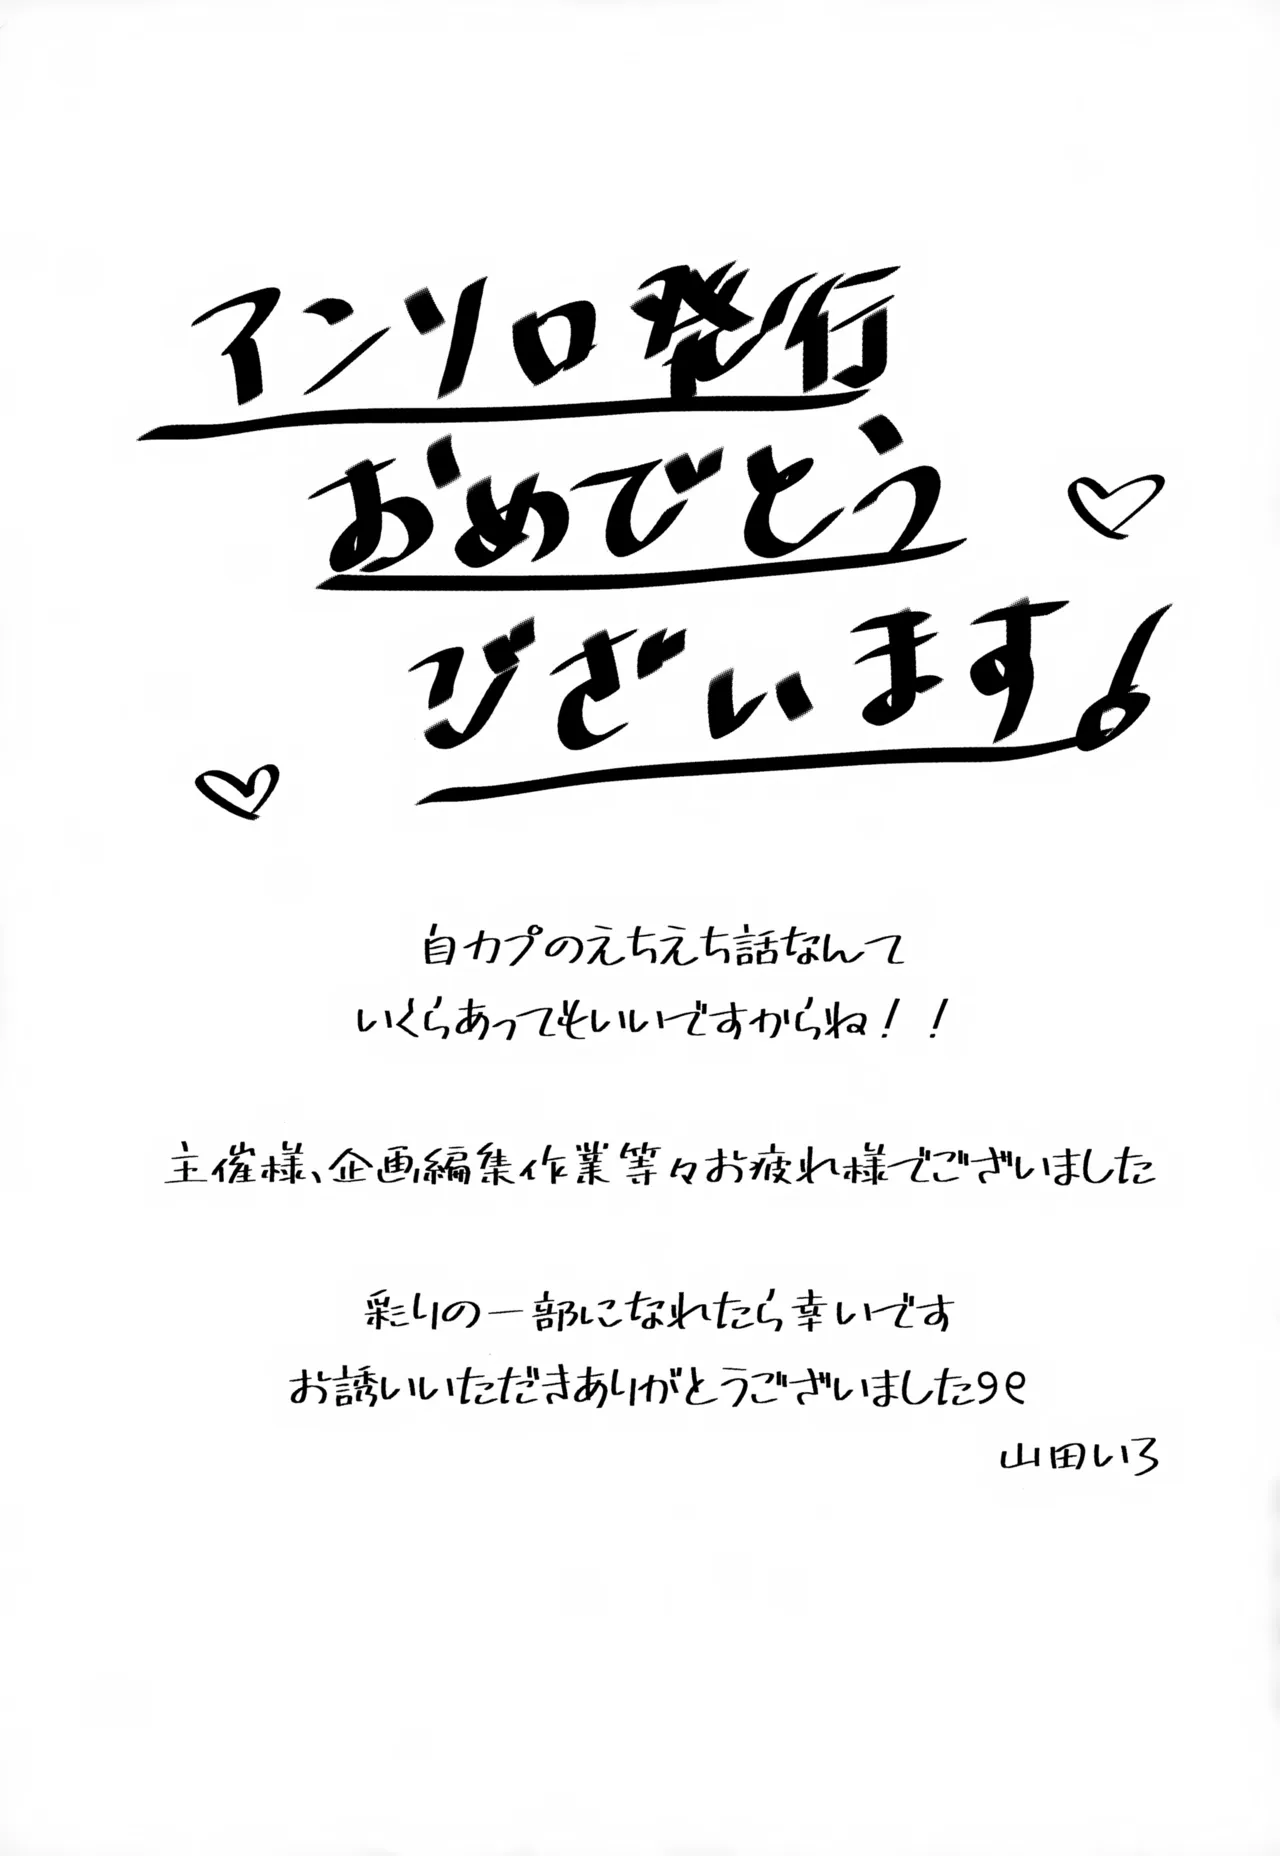 アンソロ発行
おめでとう
ございます!
自カプのえちえち話なんて
いくらあってもいいですからね!!
主催様、企画編集作業等々お疲れ様でございました
彩りの一部になれたら幸いです
お誘いいただきありがとうございました୨୧
山田いろ